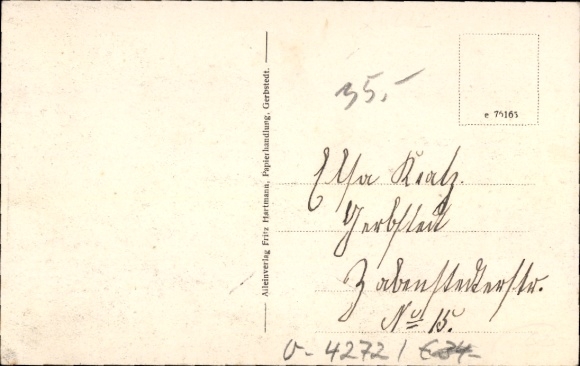 Alleinverlag Fritz Hartmann, Papierhandlung, Gerbstedt.
35,-
e 75163
Elsa Kratz.
Gerbstedt
Zabenstedterstr.
No 15.
O-4272 / € 34-